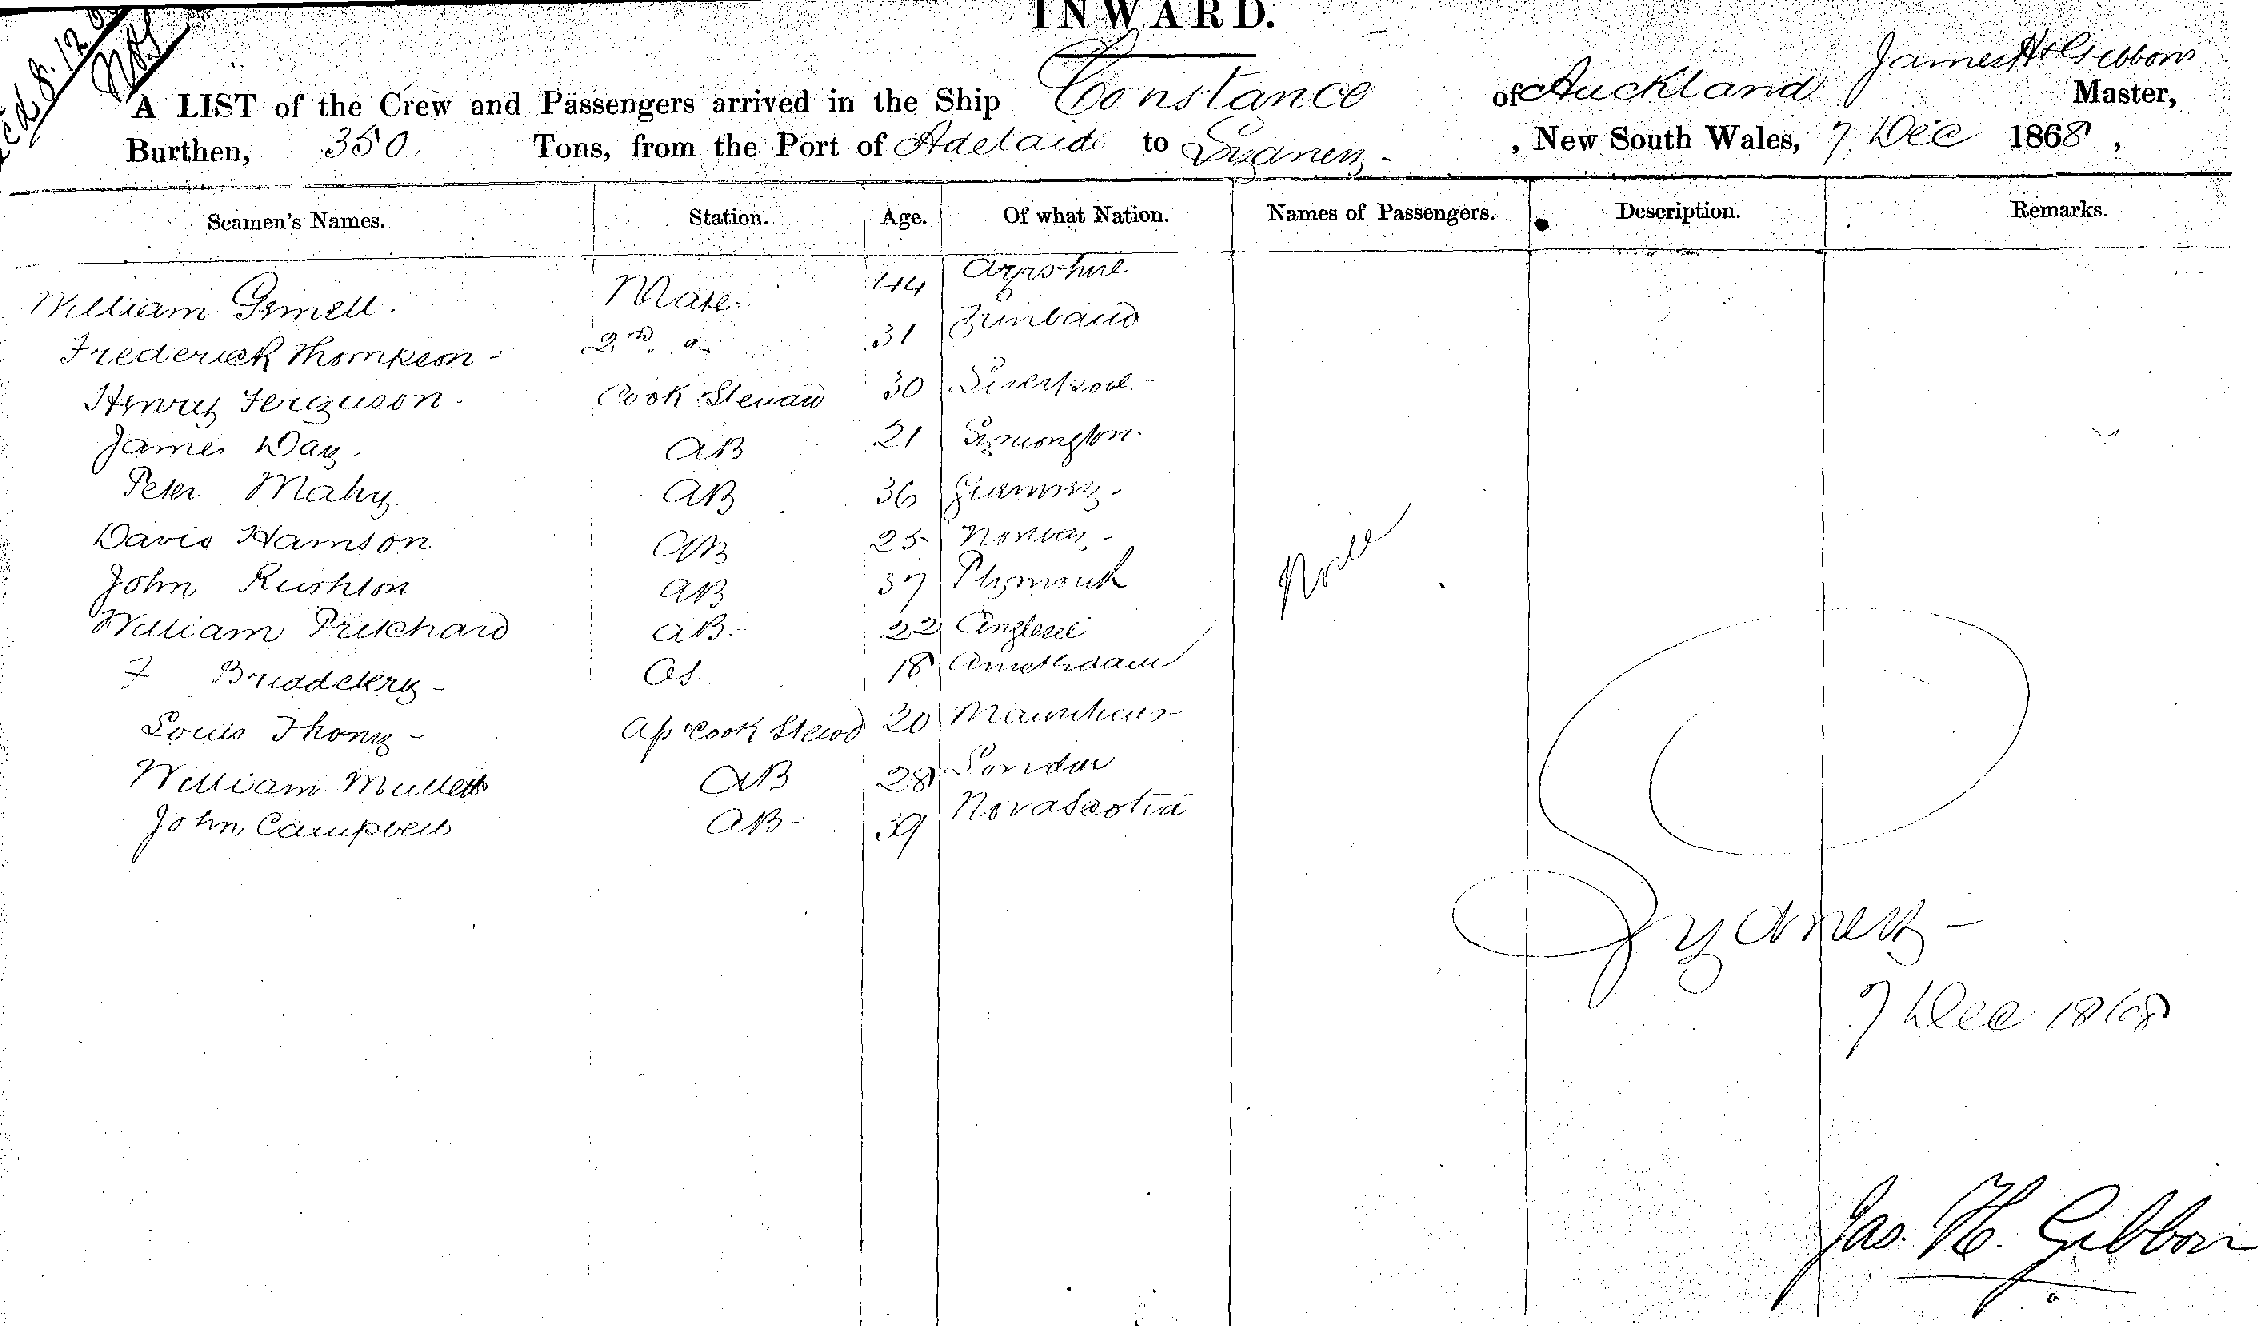 INWARD.
A LIST of the Crew and Passengers arrived in the Ship Constance of Auckland James H Gibbon Master,
Burthen, 350 Tons, from the Port of Adelaide to Sydney - , New South Wales, 7 Dec 1868 ,
Seamen's Names. Station. Age. Of what Nation. Names of Passengers. Description. Remarks.
William Gemell. Mate. 44 Ayrshire
Frederick Thompson - 2nd 31
Henry Ferguson. Cook Steward 30 Liverpool -
James Day. AB 21 Lymington.
Peter Mahy AB 36 Guernsey -
David Hamson AB 25 Norway -
John Rushton AB 37 Plymouth
William Prichard AB - 22 Anglesea
F OS 18 Amsterdam
Louis Thomy - Cook Stewd 20 Mauritius -
William Mullett AB 28 London
John Campbell AB - 39 Nova Scotia
None
Sydney -
7 Dec 1868
Jas. H. Gibbon